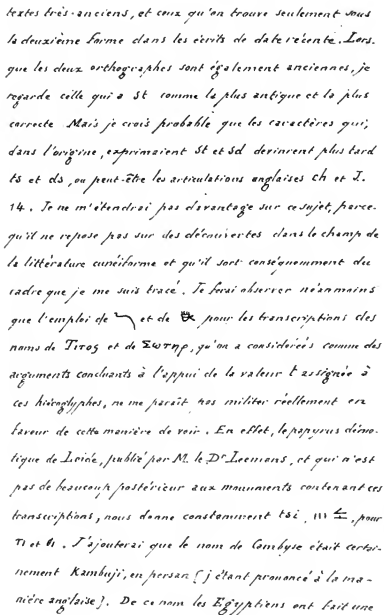 textes très-anciens, et ceux qu'on trouve seulement sous
la deuxième forme dans les écrits de date récente. Lors-
que les deux orthographes sont également anciennes, je
regarde celle qui a st comme la plus antique et la plus
correcte Mais je crois probable que les caractères qui,
dans l'origine, exprimaient st et sd devinrent plus tard
ts et ds, ou peut-être les articulations anglaises ch et J.
14. Je ne m'étendrai pas davantage sur ce sujet, parce-
qu'il ne repose pas sur des découvertes dans le champ de
la littérature cunéiforme et qu'il sort conséquemment du
cadre que je me suis tracé. Je ferai observer néanmoins
que l'emploi de et de pour les transcriptions des
noms de Τιτος et de Σωτηρ, qu'on a considérés comme des
arguments concluants à l'appui de la valeur t assignée à
ces hiéroglyphes, ne me paraît pas militer réellement en
faveur de cette manière de voir. En effet, le papyrus démo-
tique de Leide, publié par M. le Dr Leemans, et qui n'est
pas de beaucoup postérieur aux monuments contenant ces
transcriptions, nous donne constamment tsi, pour
τι et . J'ajouterai que le nom de Cambyse était certai-
nement Kambuji, en persan (j étant prononcé à la ma-
nière anglaise). De ce nom les Egyptiens ont fait une